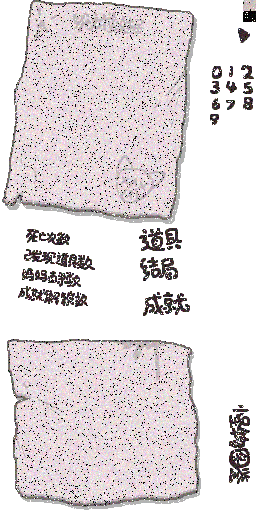 0 1 2
3 4 5
6 7 8
9
死亡次数
已发现道具数
妈妈击杀数
成就解锁数
道具
结局
成就